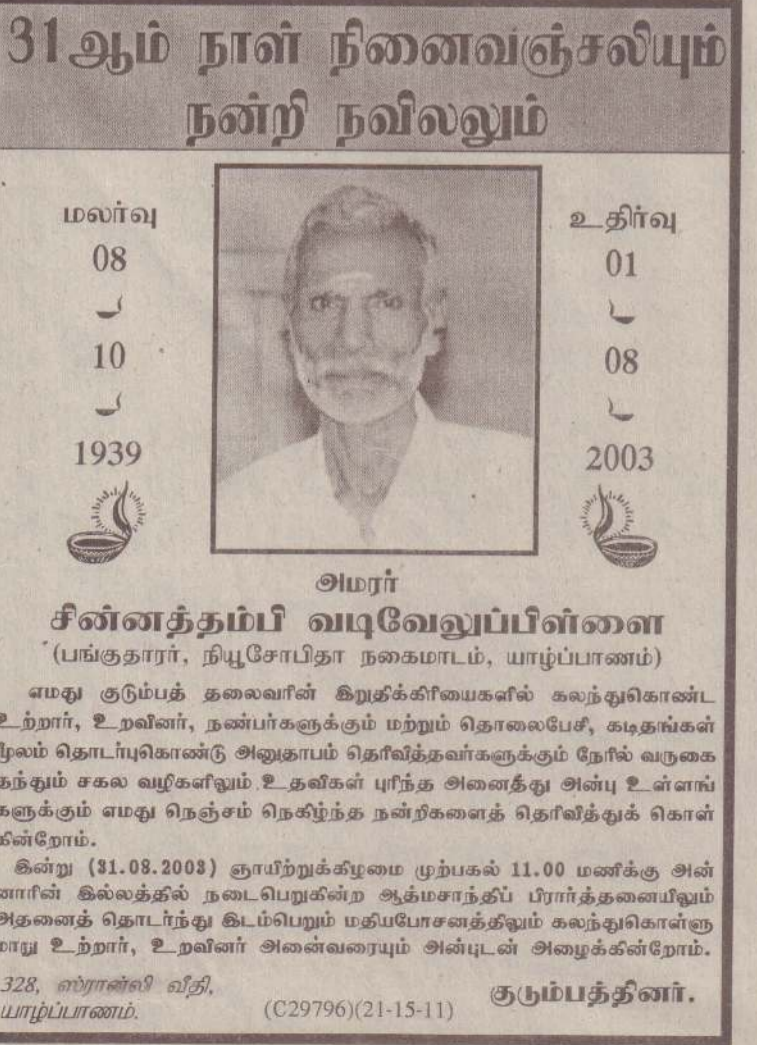 31ஆம் நாள் நினைவஞ்சலியும்
நன்றி நவிலலும்
மலர்வு
08
10
1939
உதிர்வு
01
08
2003
அமரர்
சின்னத்தம்பி வடிவேலுப்பிள்ளை
(பங்குதாரர், நியூசோபிதா நகைமாடம், யாழ்ப்பாணம்)
எமது குடும்பத் தலைவரின் இறுதிக்கிரியைகளில் கலந்துகொண்ட
உற்றார், உறவினர், நண்பர்களுக்கும் மற்றும் தொலைபேசி, கடிதங்கள்
மூலம் தொடர்புகொண்டு அனுதாபம் தெரிவித்தவர்களுக்கும் நேரில் வருகை
தந்தும் சகல வழிகளிலும் உதவிகள் புரிந்த அனைத்து அன்பு உள்ளங்
களுக்கும் எமது நெஞ்சம் நெகிழ்ந்த நன்றிகளைத் தெரிவித்துக் கொள்
கின்றோம்.
இன்று (31.08.2003) ஞாயிற்றுக்கிழமை முற்பகல் 11.00 மணிக்கு அன்
னாரின் இல்லத்தில் நடைபெறுகின்ற ஆத்மசாந்திப் பிரார்த்தனையிலும்
அதனைத் தொடர்ந்து இடம்பெறும் மதியபோசனத்திலும் கலந்துகொள்ளு
மாறு உற்றார், உறவினர் அனைவரையும் அன்புடன் அழைக்கின்றோம்.
328, ஸ்ரான்லி வீதி,
யாழ்ப்பாணம்.
(C29796)(21-15-11)
குடும்பத்தினர்.